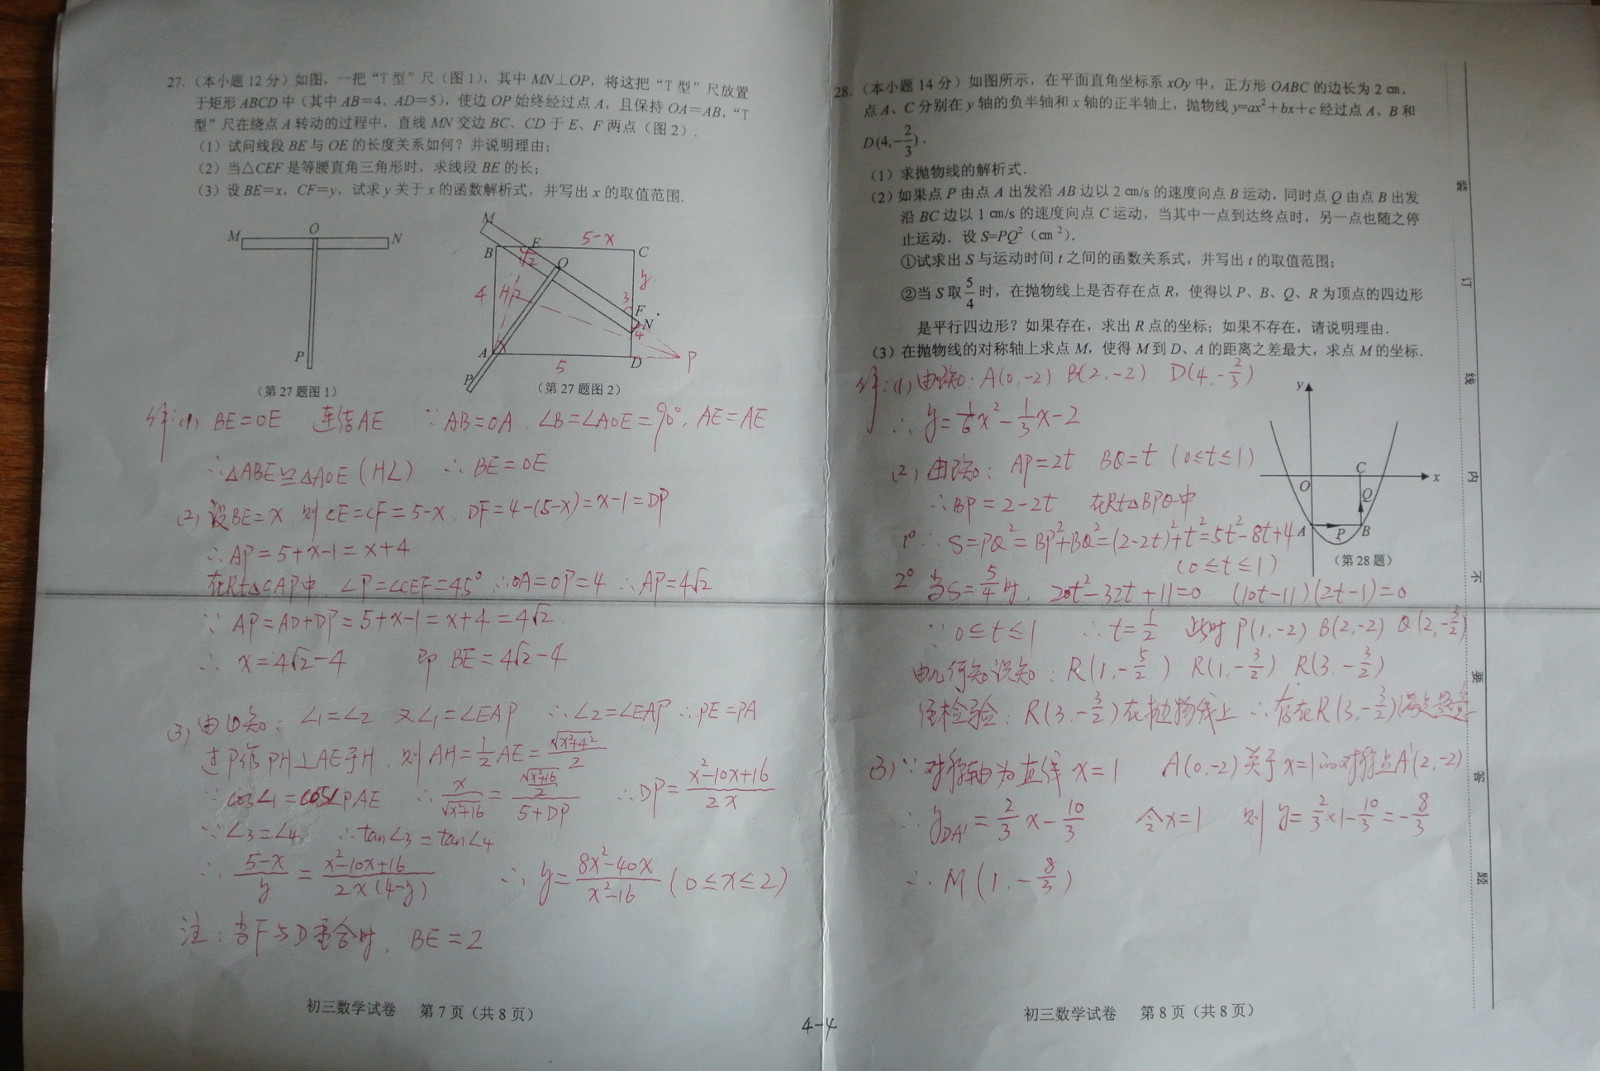 27.（本小题 12 分）如图，一把“T 型”尺（图 1），其中 MN⊥OP，将这把“T 型”尺放置
于矩形 ABCD 中（其中 AB=4，AD=5），使边 OP 始终经过点 A，且保持 OA=AB，“T
型”尺在绕点 A 转动的过程中，直线 MN 交边 BC、CD 于 E、F 两点（图 2）.
（1）试问线段 BE 与 OE 的长度关系如何？并说明理由；
（2）当△CEF 是等腰直角三角形时，求线段 BE 的长；
（3）设 BE=x，CF=y，试求 y 关于 x 的函数解析式，并写出 x 的取值范围.
M O N
P
（第 27 题图 1）
M
B E 5-x C
1 2 O y
4 H 3 F
N
4
A 5 D P
P
（第 27 题图 2）
解:(1) BE=OE 连结AE ∵AB=OA. ∠B=∠AOE=90°, AE=AE
∴△ABE≌△AOE (HL) ∴BE=OE
(2) 设BE=x. 则CE=CF=5-x, DF=4-(5-x)=x-1=DP
∴AP=5+x-1=x+4
在Rt△OAP中, ∠P=∠CEF=45° ∴OA=OP=4 ∴AP=4√2
∵AP=AD+DP=5+x-1=x+4=4√2
∴x=4√2-4 即 BE=4√2-4
(3) 由(1)知: ∠1=∠2 又∠1=∠EAP ∴∠2=∠EAP ∴PE=PA
过P作PH⊥AE于H, 则AH=1/2AE=√(x²+4²)/2
∵cos∠1=cos∠PAE ∴x/√(x²+16)=(√(x²+16)/2)/(5+DP) ∴DP=(x²-10x+16)/2x
∵∠3=∠4 ∴tan∠3=tan∠4
∴(5-x)/y=(x²-10x+16)/2x(4-y) ∴y=(8x²-40x)/(x²-16) (0≤x≤2)
注: 当F与D重合时, BE=2
初三数学试卷 第 7 页（共 8 页）
4-4
28.（本小题 14 分）如图所示，在平面直角坐标系 xOy 中，正方形 OABC 的边长为 2 cm，
点 A、C 分别在 y 轴的负半轴和 x 轴的正半轴上，抛物线 y=ax²+bx+c 经过点 A、B 和
D(4,-2/3).
（1）求抛物线的解析式.
（2）如果点 P 由点 A 出发沿 AB 边以 2 cm/s 的速度向点 B 运动，同时点 Q 由点 B 出发
沿 BC 边以 1 cm/s 的速度向点 C 运动，当其中一点到达终点时，另一点也随之停
止运动. 设 S=PQ²（cm²）.
①试求出 S 与运动时间 t 之间的函数关系式，并写出 t 的取值范围；
②当 S 取 5/4 时，在抛物线上是否存在点 R，使得以 P、B、Q、R 为顶点的四边形
是平行四边形？如果存在，求出 R 点的坐标；如果不存在，请说明理由.
（3）在抛物线的对称轴上求点 M，使得 M 到 D、A 的距离之差最大，求点 M 的坐标.
解:(1) 由题知: A(0,-2) B(2,-2) D(4,-2/3)
∴y=1/6x²-1/3x-2
(2) 由题知: AP=2t BQ=t (0≤t≤1)
∴BP=2-2t 在Rt△BPQ中
1° ∴S=PQ²=BP²+BQ²=(2-2t)²+t²=5t²-8t+4
(0≤t≤1)
y
O C x
Q
A P B
（第 28 题）
2° 当S=5/4时, 20t²-32t+11=0 (10t-11)(2t-1)=0
∵0≤t≤1 ∴t=1/2 此时 P(1,-2) B(2,-2) Q(2,-3/2)
由几何知识知: R(1,-5/2) R(1,-3/2) R(3,-3/2)
经检验: R(3,-3/2)在抛物线上 ∴存在R(3,-3/2)满足题意
(3) ∵对称轴为直线 x=1 A(0,-2)关于x=1的对称点A'(2,-2)
∴yDA'=2/3x-10/3 令x=1 则 y=2/3×1-10/3=-8/3
∴M(1,-8/3)
初三数学试卷 第 8 页（共 8 页）
装 订 线 内 不 要 答 题